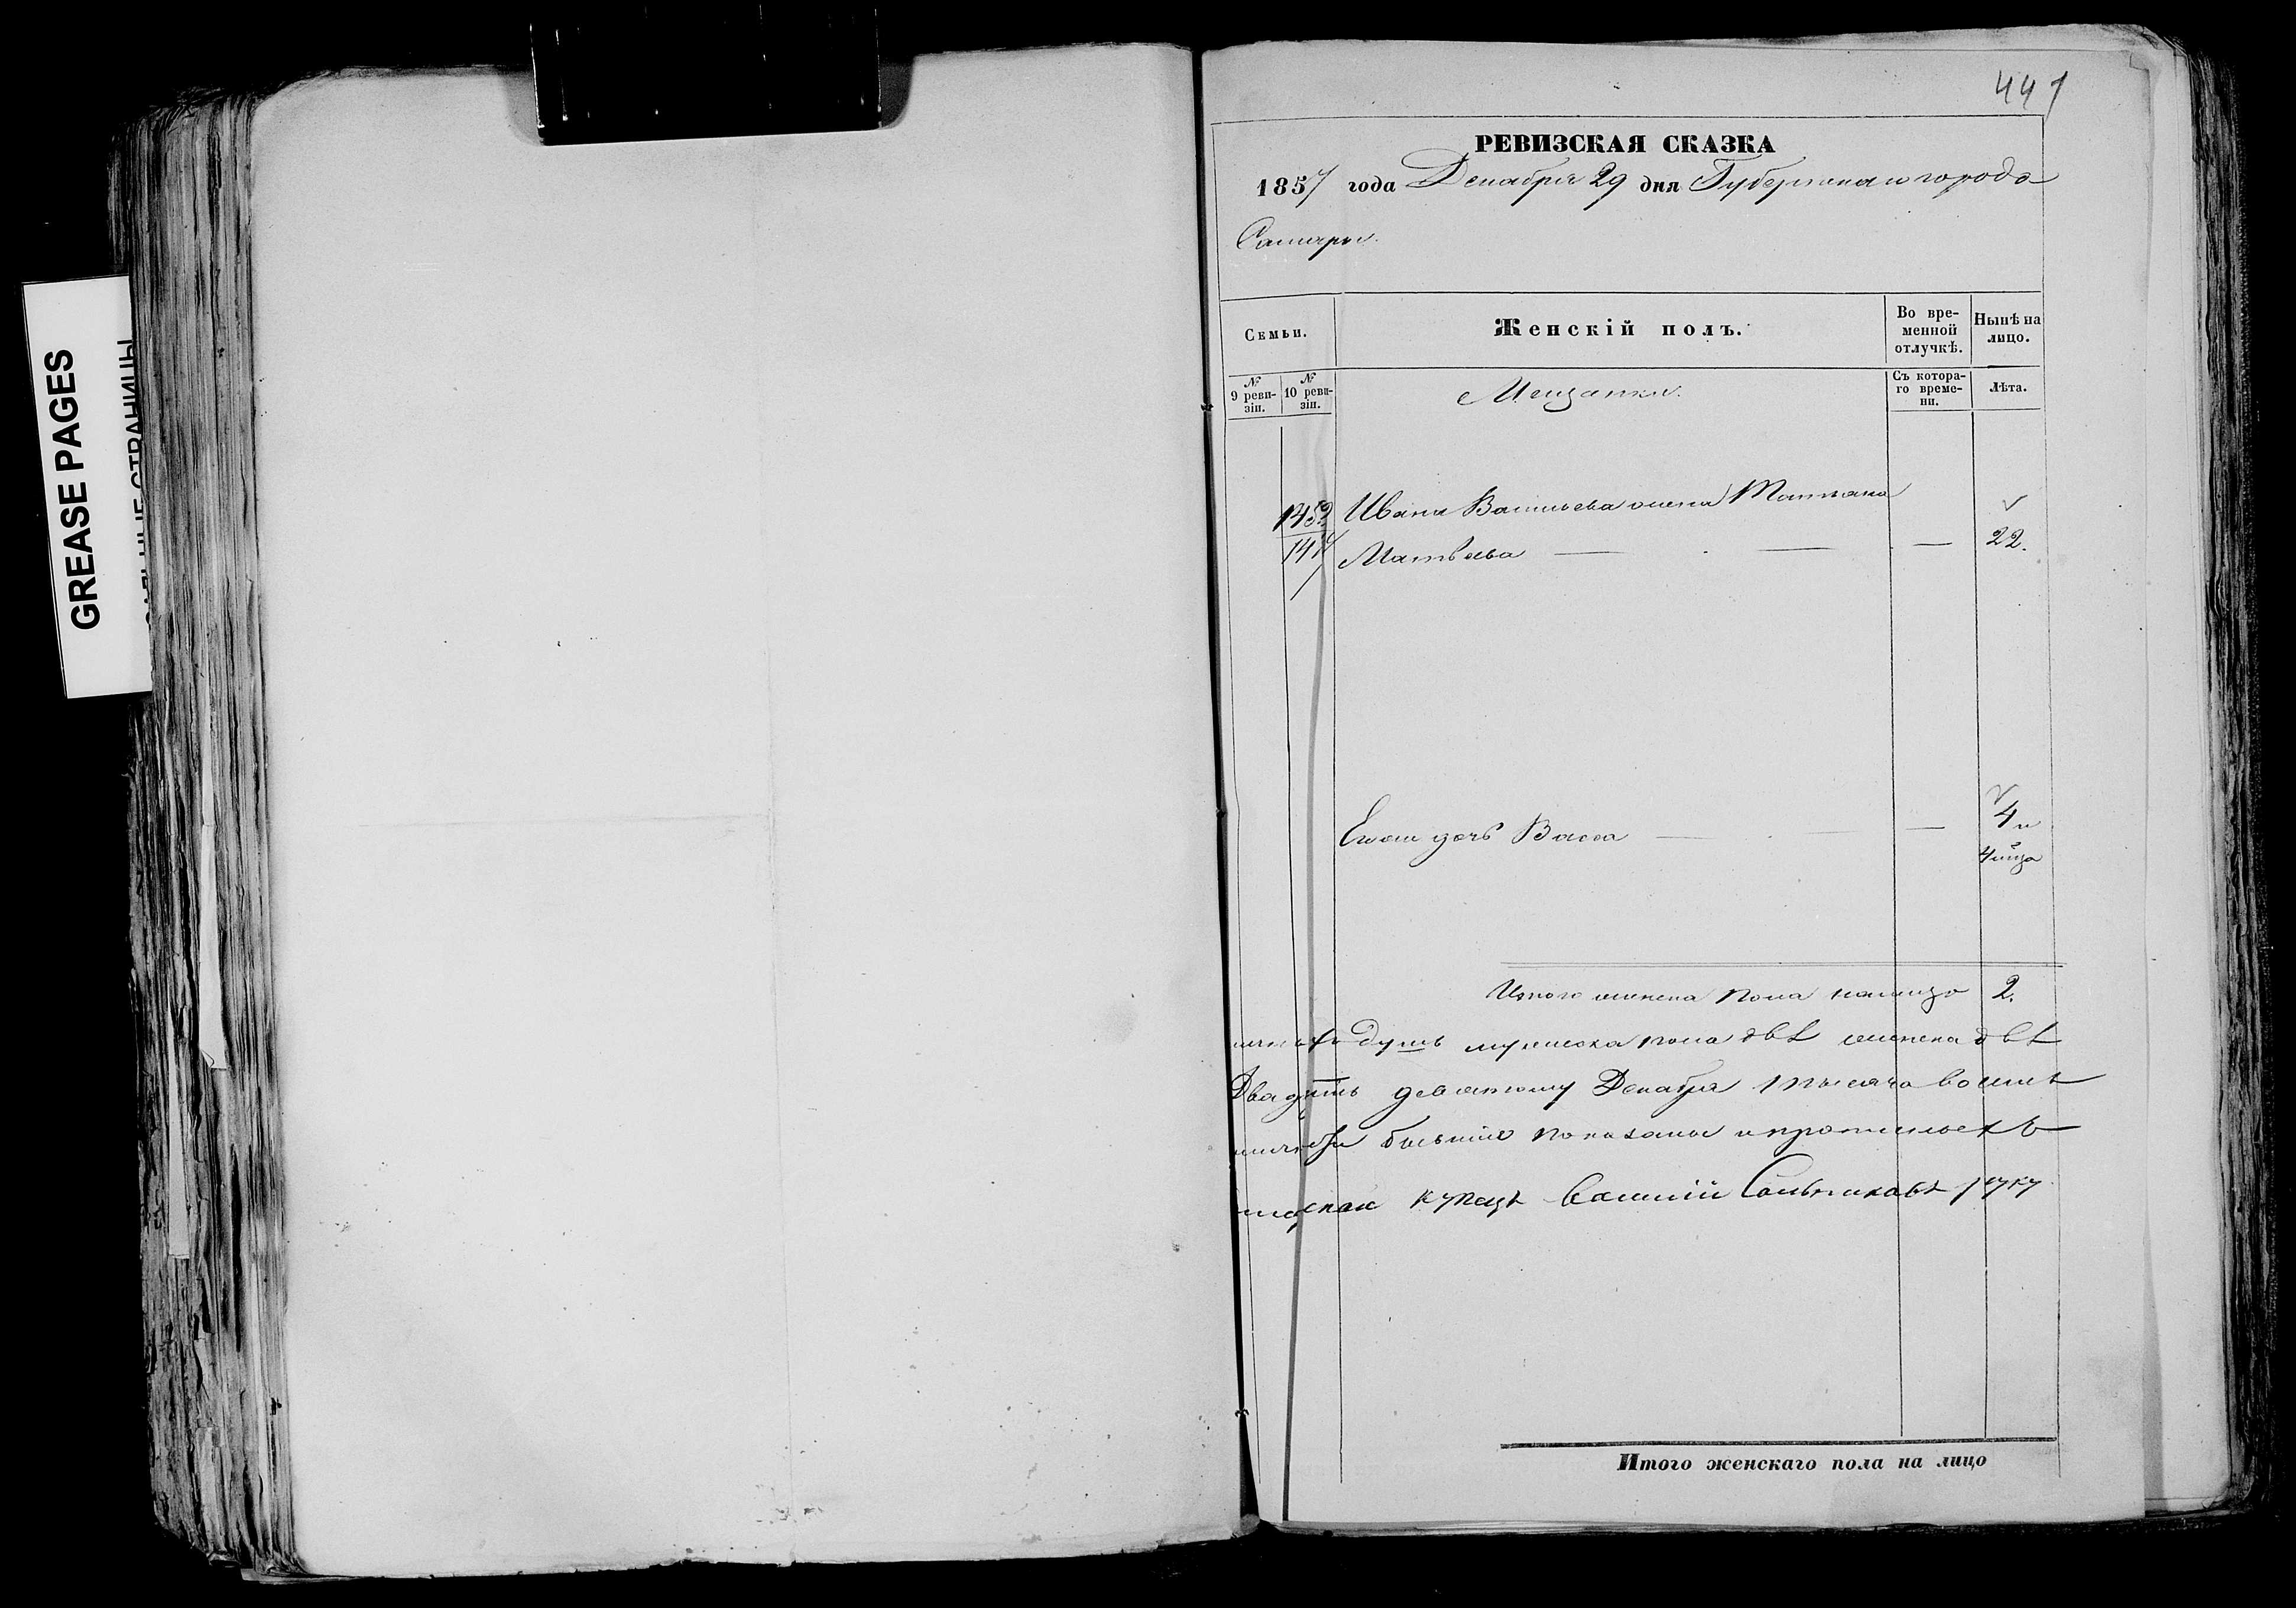 GREASE PAGES
441
РЕВИЗСКАЯ СКАЗКА
1857 года Декабря 29 дня Губернскаго города
Самары.
Семьи.
Женскій полъ.
Во вре-
менной
отлучкѣ.
Нынѣ на
лицо.
№
9 реви-
зіи.
№
10 реви-
зіи.
Мещанки.
Съ котора-
го време-
ни.
Лѣта.
Ивана Васильева жена Татьяна
Матвѣева — — — 22.
Ево дочь Васса — — 4 и
4 мца
Итого женска пола налицо 2.
душъ мужеска пола двѣ женска двѣ
Двадцать девятому Декабря тысяча восемь
бывшіе показаны и прописныхъ
купецъ Василій руку
Итого женскаго пола на лицо